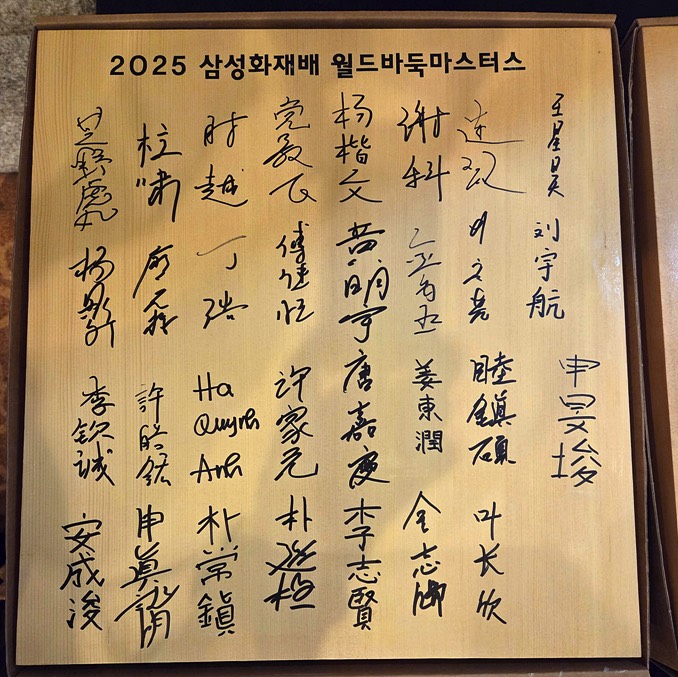 2025 삼성화재배 월드바둑마스터스
芝野虎丸
时越
党毅飞
杨楷文
谢科
王星昊
杨鼎新
廖元赫
丁浩
傅健恒
黄明宇
刘宇航
李钦诚
許皓鋐
Ha
Quynh
Anh
许家元
唐嘉雯
姜東潤
睦鎭碩
申旻埈
安成浚
申眞諝
朴常鎭
朴廷桓
李志賢
金志錫
叶长欣